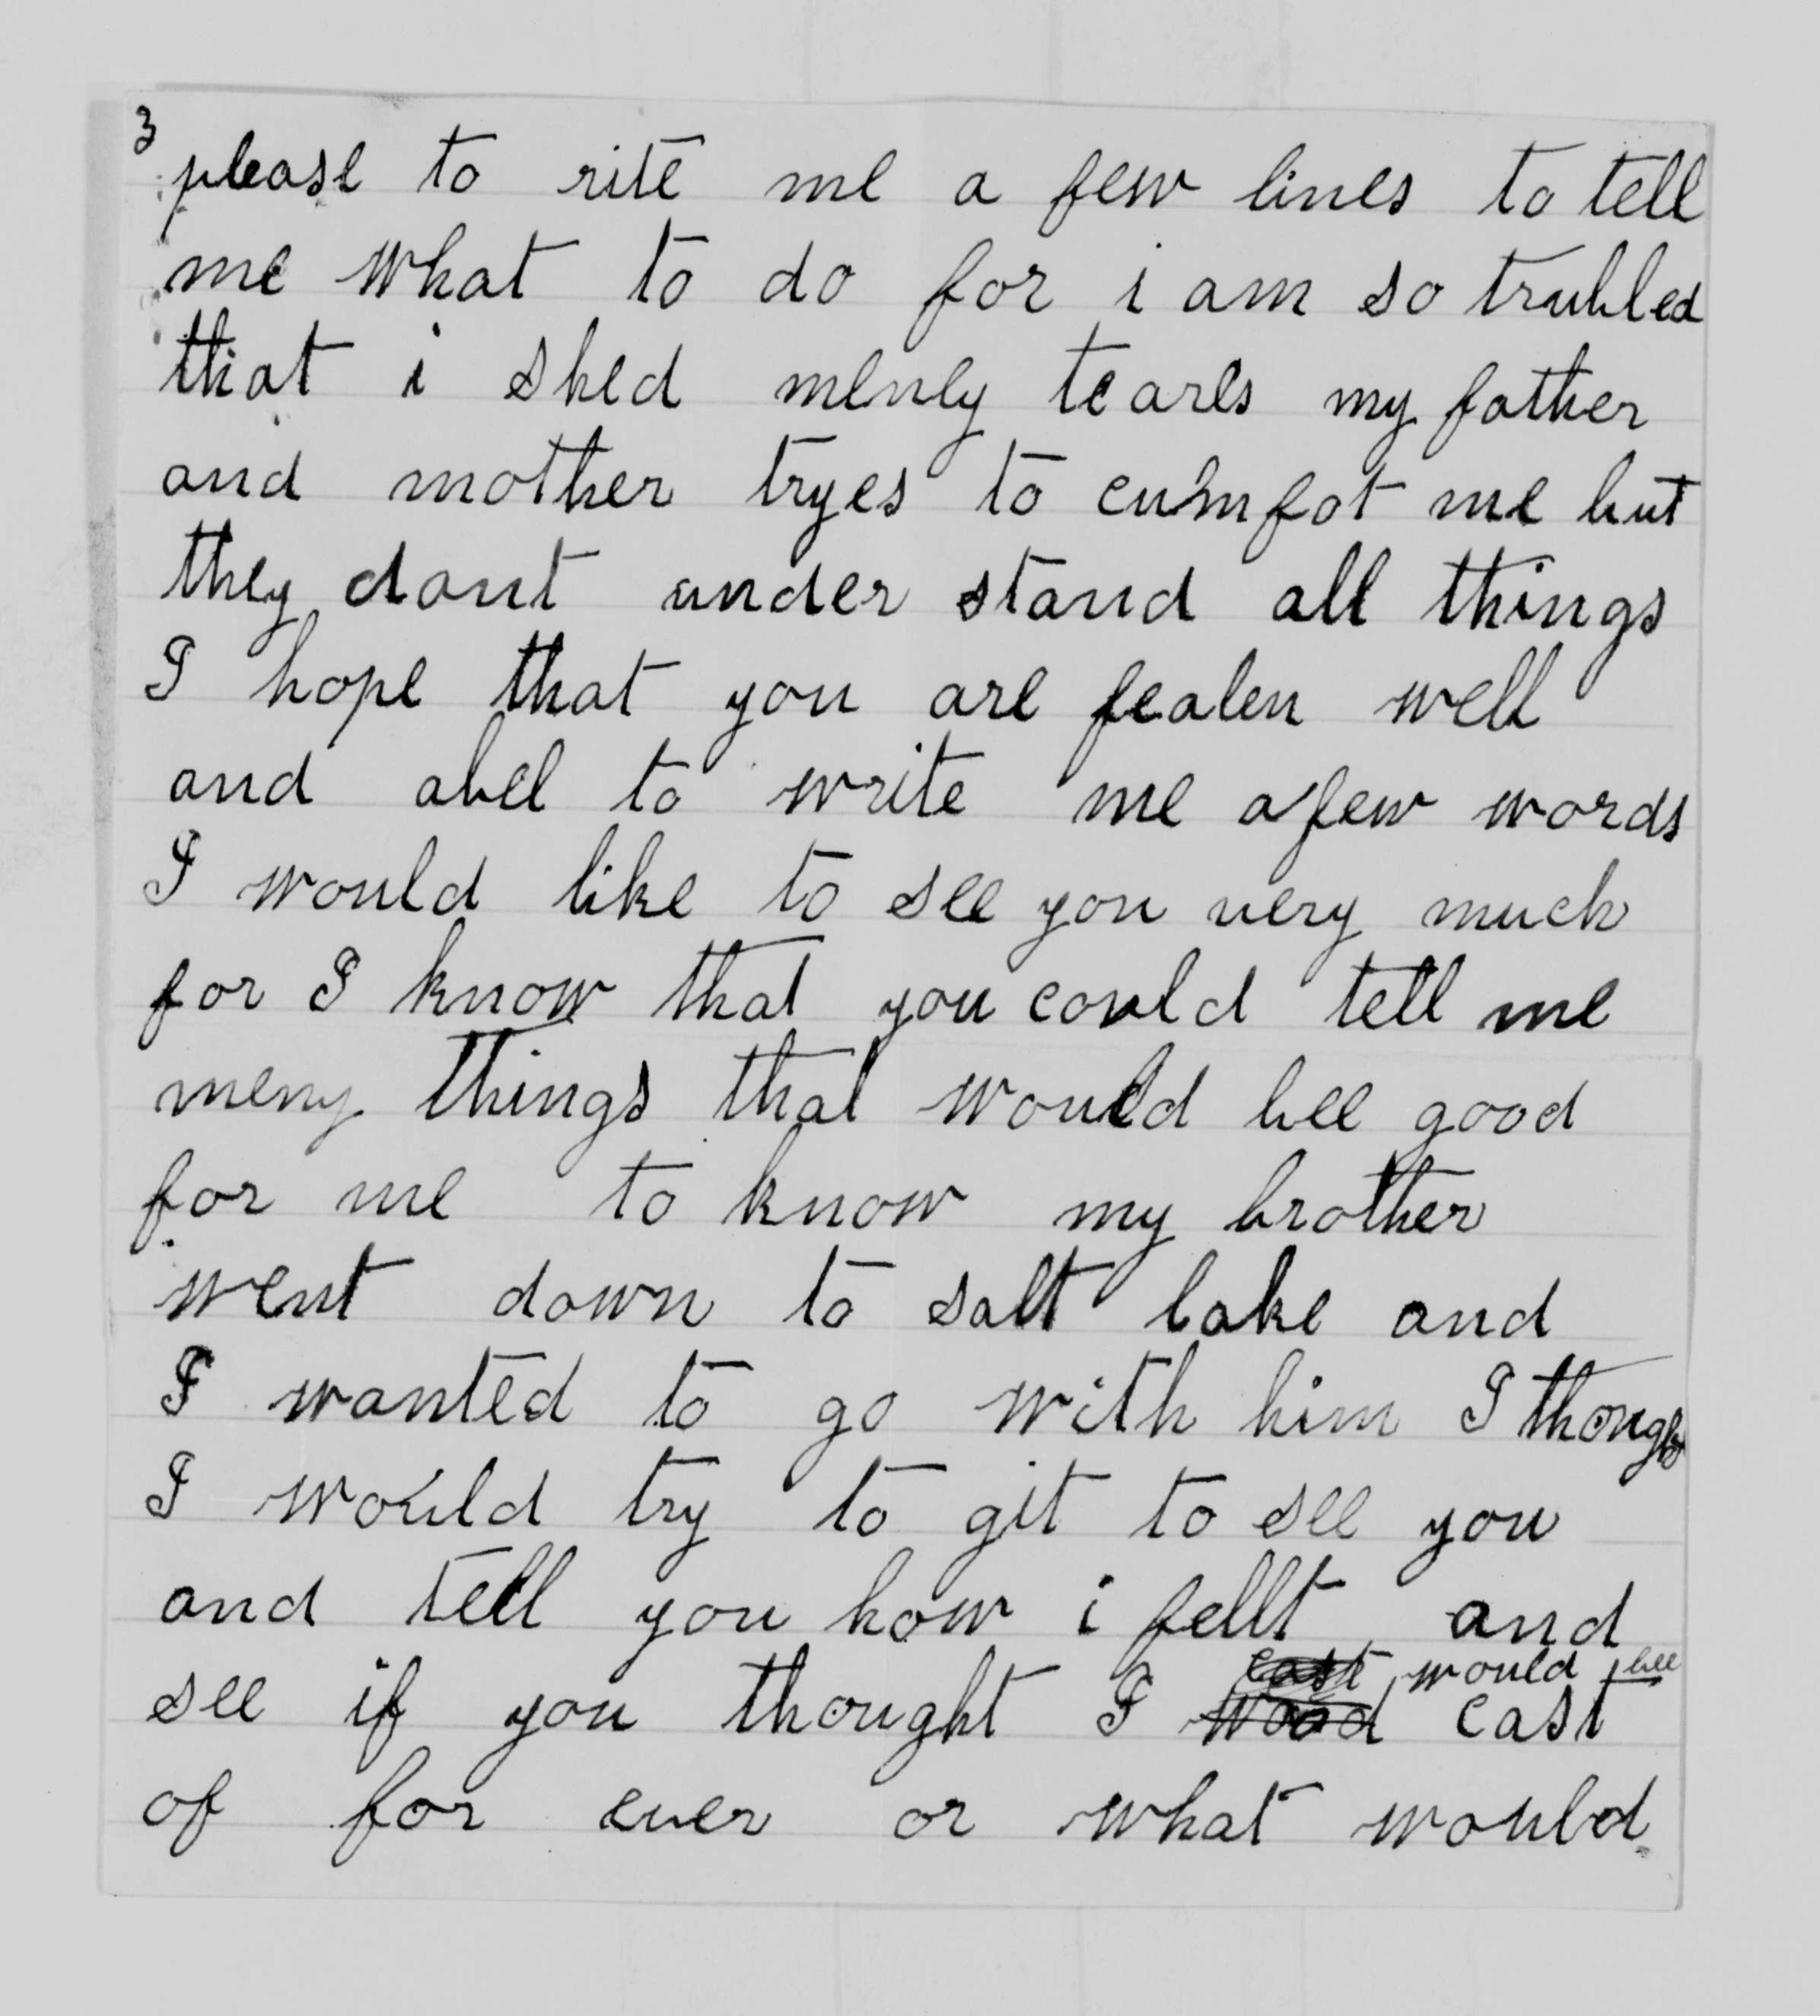 3
please to rite me a few lines to tell
me what to do for i am so trubled
that i shed meney teares my father
and mother tryes to cumfot me but
they dont under stand all things
I hope that you are fealen well
and abel to write me a few words
I would like to see you very much
for I know that you could tell me
meny things that would bee good
for me to know my brother
went down to salt lake and
I wanted to go with him I thought
I would try to git to see you
and tell you how i fellt and
cast would bee
see if you thought I wood cast
of for ever or what would